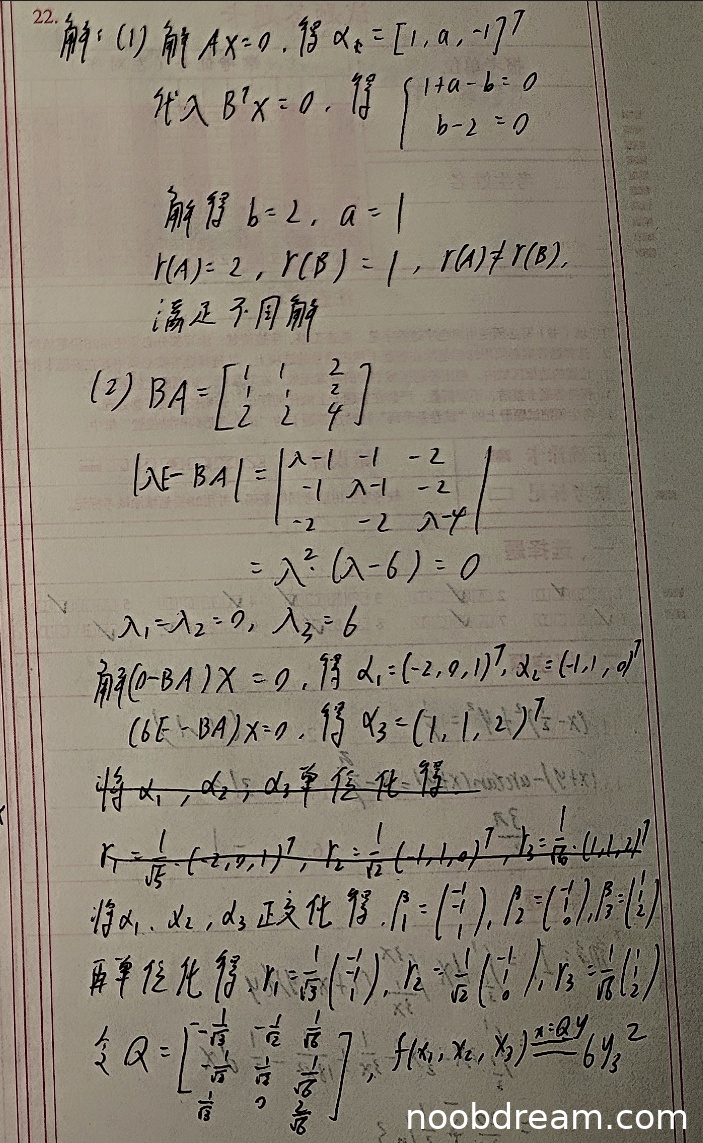 22.
解:(1) 解 Ax=0. 得 α = [1, a, -1]ᵀ
代入 BᵀX=0. 得 { 1+a-b=0
b-2=0
解得 b=2, a=1
r(A)=2, r(B)=1, r(A)≠r(B),
满足不同解
(2) BA = [1 1 2
1 1 2
2 2 4]
|λE-BA| = |λ-1 -1 -2
-1 λ-1 -2
-2 -2 λ-4|
= λ²·(λ-6) = 0
λ₁=λ₂=0, λ₃=6
解(0-BA)X=0, 得 α₁=(-2,0,1)ᵀ, α₂=(-1,1,0)ᵀ
(6E-BA)x=0, 得 α₃=(1,1,2)ᵀ
将α₁, α₂, α₃单位化得.
r₁=1/√5·(-2,0,1)ᵀ, r₂=1/√2(-1,1,0)ᵀ, r₃=1/√6·(1,1,2)ᵀ
将α₁. α₂, α₃正交化得. β₁=(-1 -1 1), β₂=(-1 1 0), β₃=(1 1 2)
再单位化得. r₁=1/√3(-1 -1 1), r₂=1/√2(-1 1 0), r₃=1/√6(1 1 2)
令 Q = [-1/√3 -1/√2 1/√6
-1/√3 1/√2 1/√6
1/√3 0 2/√6], f(x₁, x₂, x₃) x=Qy 6y₃²
noobdream.com